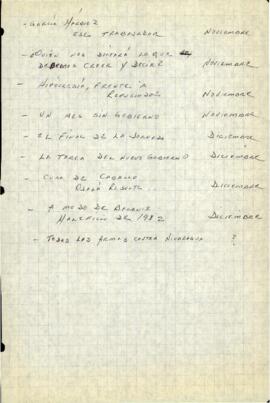 - GARCÍA MÁRQUEZ
ESE TRABAJADOR NOVIEMBRE
- ¿QUIÉN NOS DICTARÁ LO QUE
DEBEMOS CREER Y DECIR? NOVIEMBRE
- HIPOCRESÍA, FRENTE A
REFUGIADOS NOVIEMBRE
- UN MES SIN GOBIERNO NOVIEMBRE
- EL FINAL DE LA JORNADA DICIEMBRE
- LA TAREA DEL NUEVO GOBIERNO DICIEMBRE
- CURA DE CABALLO
DICIEMBRE
- A MODO DE BALANCE
DE 1982 DICIEMBRE
- TODAS LAS ARMAS CONTRA NICARAGUA ?